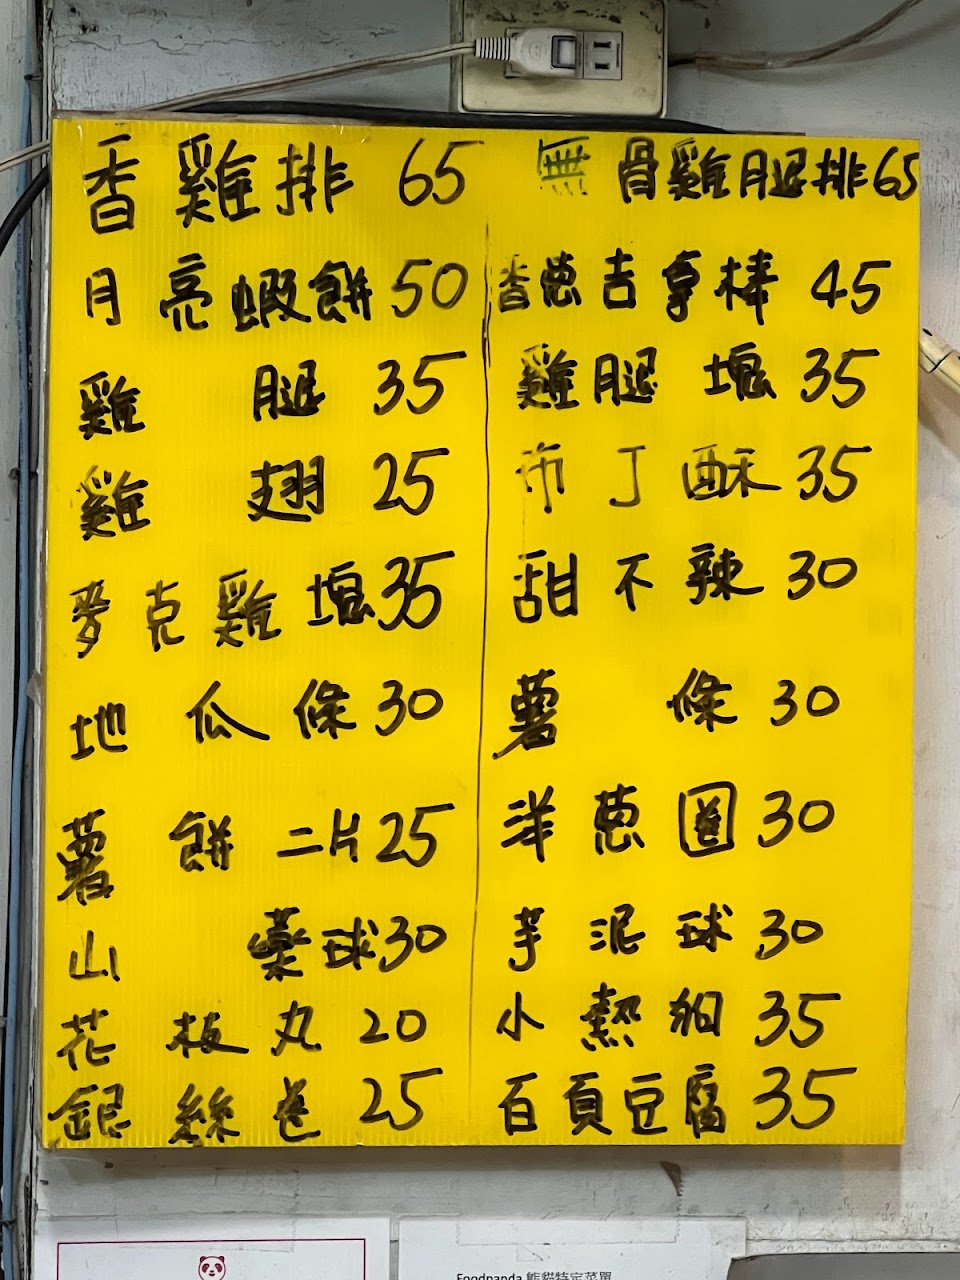 香雞排 65
無骨雞腿排 65
月亮蝦餅 50
香蔥吉拿棒 45
雞腿 35
雞腿塊 35
雞翅 25
布丁酥 35
麥克雞塊 35
甜不辣 30
地瓜條 30
薯條 30
薯餅二片 25
洋蔥圈 30
山藥球 30
芋泥球 30
花枝丸 20
小熱狗 35
銀絲卷 25
百頁豆腐 35
Foodpanda 熊貓特定菜單